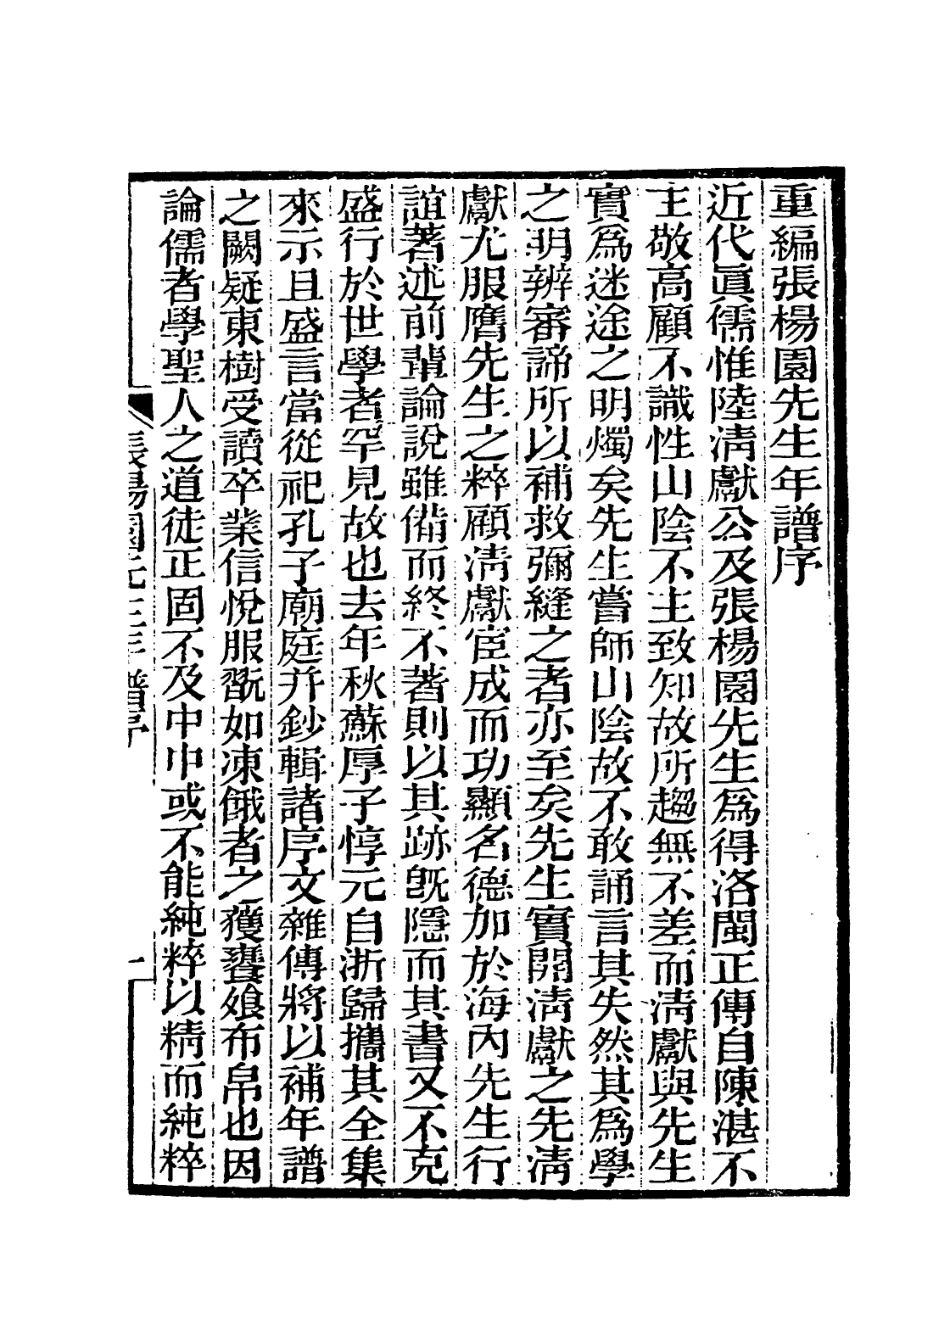 重編張楊園先生年譜序
近代眞儒惟陸淸獻公及張楊園先生爲得洛閩正傳自陳湛不
主敬高顧不識性山陰不主致知故所趨無不差而淸獻與先生
實爲迷途之明燭矣先生嘗師山陰故不敢誦言其失然其爲學
之明辨審諦所以補救彌縫之者亦至矣先生實開淸獻之先淸
獻尤服膺先生之粹顧淸獻宦成而功顯名德加於海內先生行
誼著述前輩論說雖備而終不著則以其跡旣隱而其書又不克
盛行於世學者罕見故也去年秋蘇厚子惇元自浙歸攜其全集
來示且盛言當從祀孔子廟庭并鈔輯諸序文雜傳將以補年譜
之闕疑東樹受讀卒業信悅服翫如凍餓者之獲饔飧布帛也因
論儒者學聖人之道徒正固不及中中或不能純粹以精而純粹
張楊園先生年譜序
一